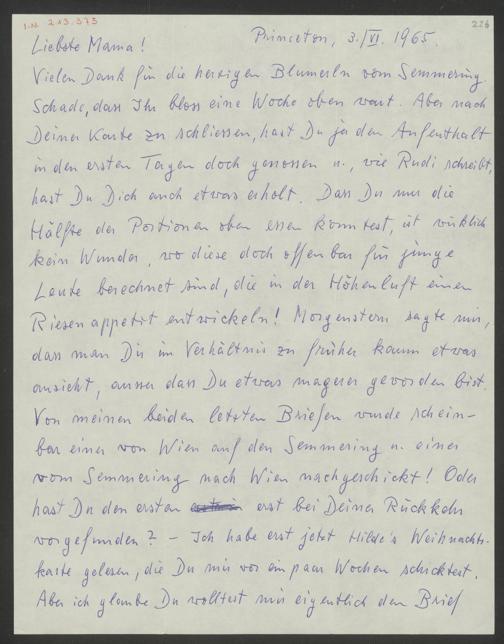 I.N. 213.373
226
Princeton, 3./VI. 1965.
Liebste Mama!
Vielen Dank für die herzigen Blumerln vom Semmering
Schade, dass Ihr bloss eine Woche oben wart. Aber nach
Deiner Karte zu schliessen, hast Du ja den Aufenthalt
in den ersten Tagen doch genossen u., wie Rudi schreibt,
hast Du Dich auch etwas erholt. Dass Du nur die
Hälfte der Portionen oben essen konntest, ist wirklich
kein Wunder, wo diese doch offenbar für junge
Leute berechnet sind, die in der Höhenluft einen
Riesenappetit entwickeln! Morgenstern sagte mir,
dass man Dir im Verhältnis zu früher kaum etwas
ansieht, ausser dass Du etwas magerer geworden bist.
Von meinen beiden letzten Briefen wurde schein-
bar einer von Wien auf den Semmering u. einer
vom Semmering nach Wien nachgeschickt! Oder
hast Du den ersten erst bei Deiner Rückkehr
vorgefunden? – Ich habe erst jetzt Hilde's Weihnachts-
karte gelesen, die Du mir vor ein paar Wochen schicktest.
Aber ich glaube Du wolltest mir eigentlich den Brief